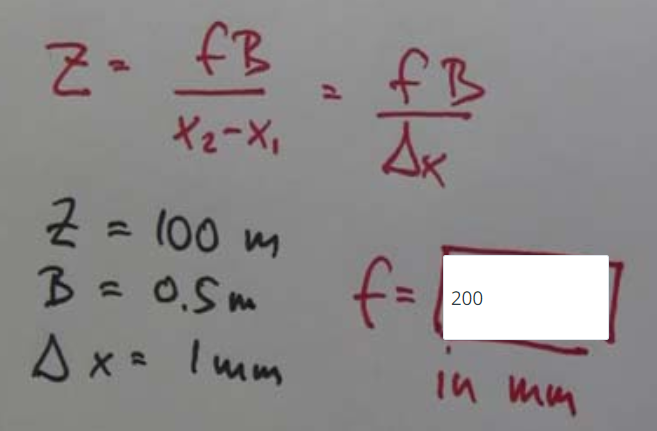 Z = fB / x₂-x₁ = fB / Δx
Z = 100 m
B = 0.5 m
Δx = 1 mm
f = 200
in mm